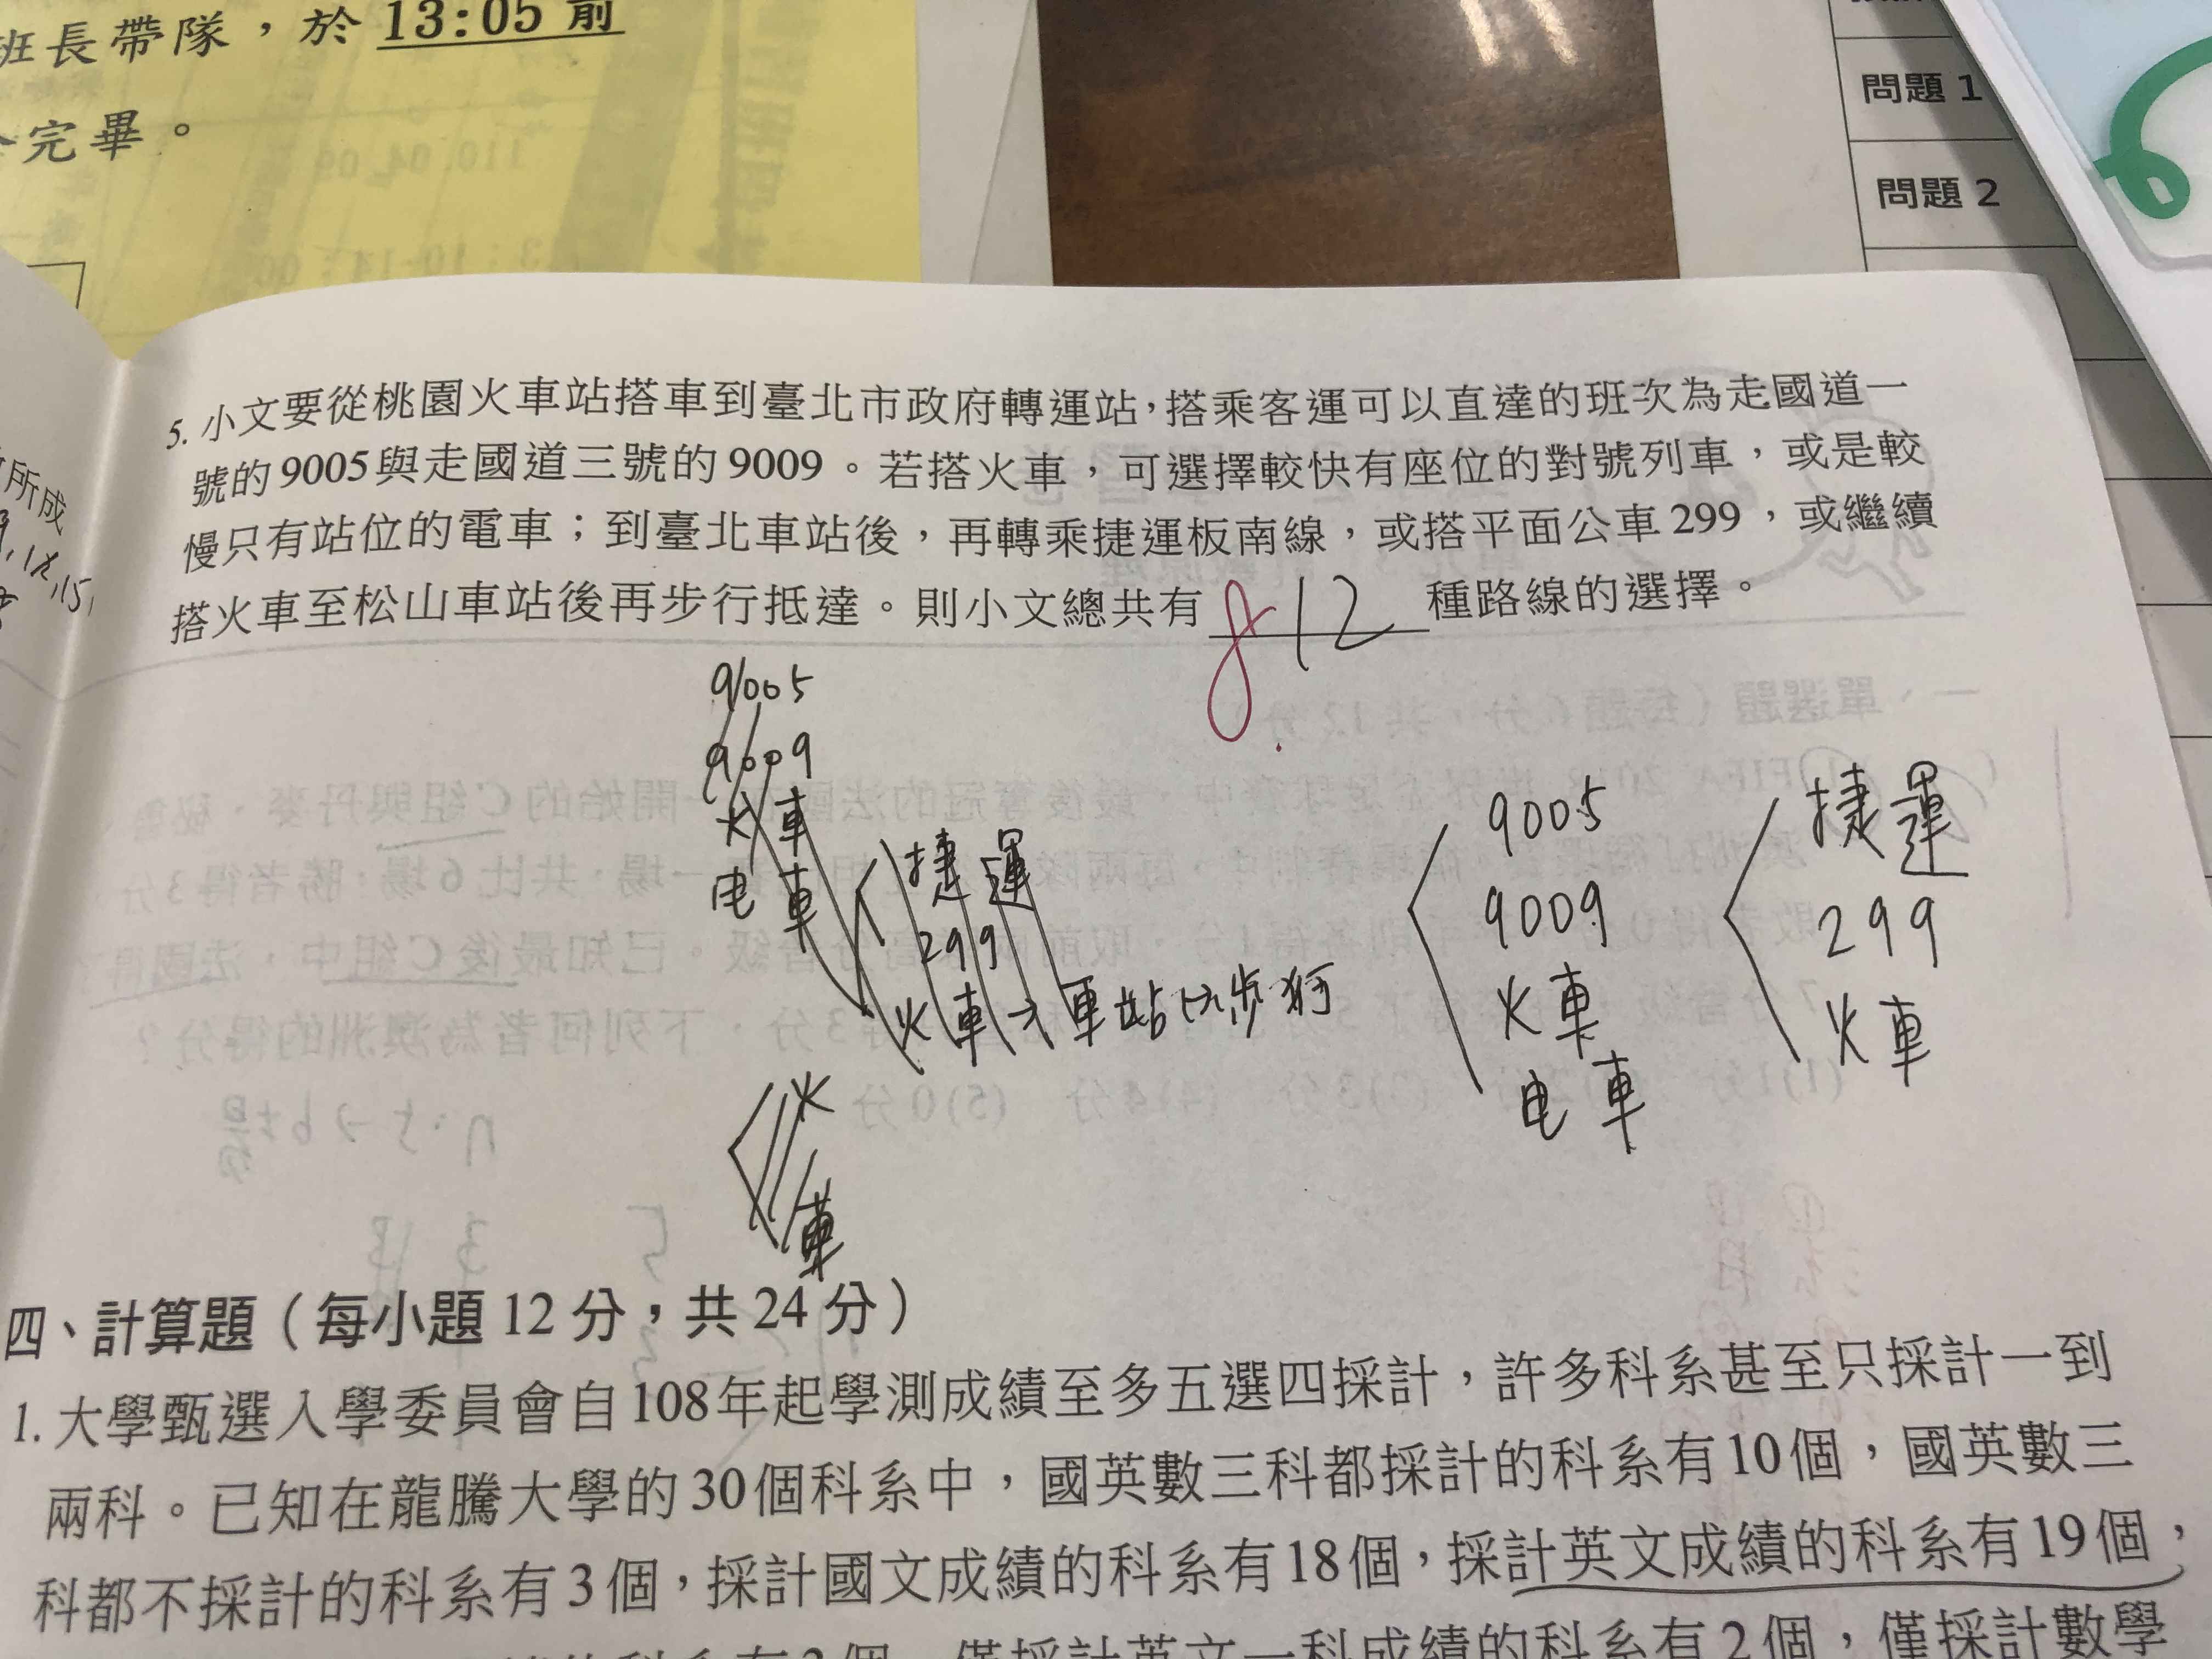 班長帶隊，於 13:05 前
完畢。
問題 1
問題 2
所成
5. 小文要從桃園火車站搭車到臺北市政府轉運站，搭乘客運可以直達的班次為走國道一
號的 9005 與走國道三號的 9009。若搭火車，可選擇較快有座位的對號列車，或是較
慢只有站位的電車；到臺北車站後，再轉乘捷運板南線，或搭平面公車 299，或繼續
搭火車至松山車站後再步行抵達。則小文總共有 8 12 種路線的選擇。
9005
9009
火車
电車
捷運
299
火車
車站
火
車
9005
9009
火車
电車
捷運
299
火車
四、計算題（每小題 12 分，共 24 分）
1. 大學甄選入學委員會自 108 年起學測成績至多五選四採計，許多科系甚至只採計一到
兩科。已知在龍騰大學的 30 個科系中，國英數三科都採計的科系有 10 個，國英數三
科都不採計的科系有 3 個，採計國文成績的科系有 18 個，採計英文成績的科系有 19 個，
僅採計英文一科成績的科系有 2 個，僅採計數學